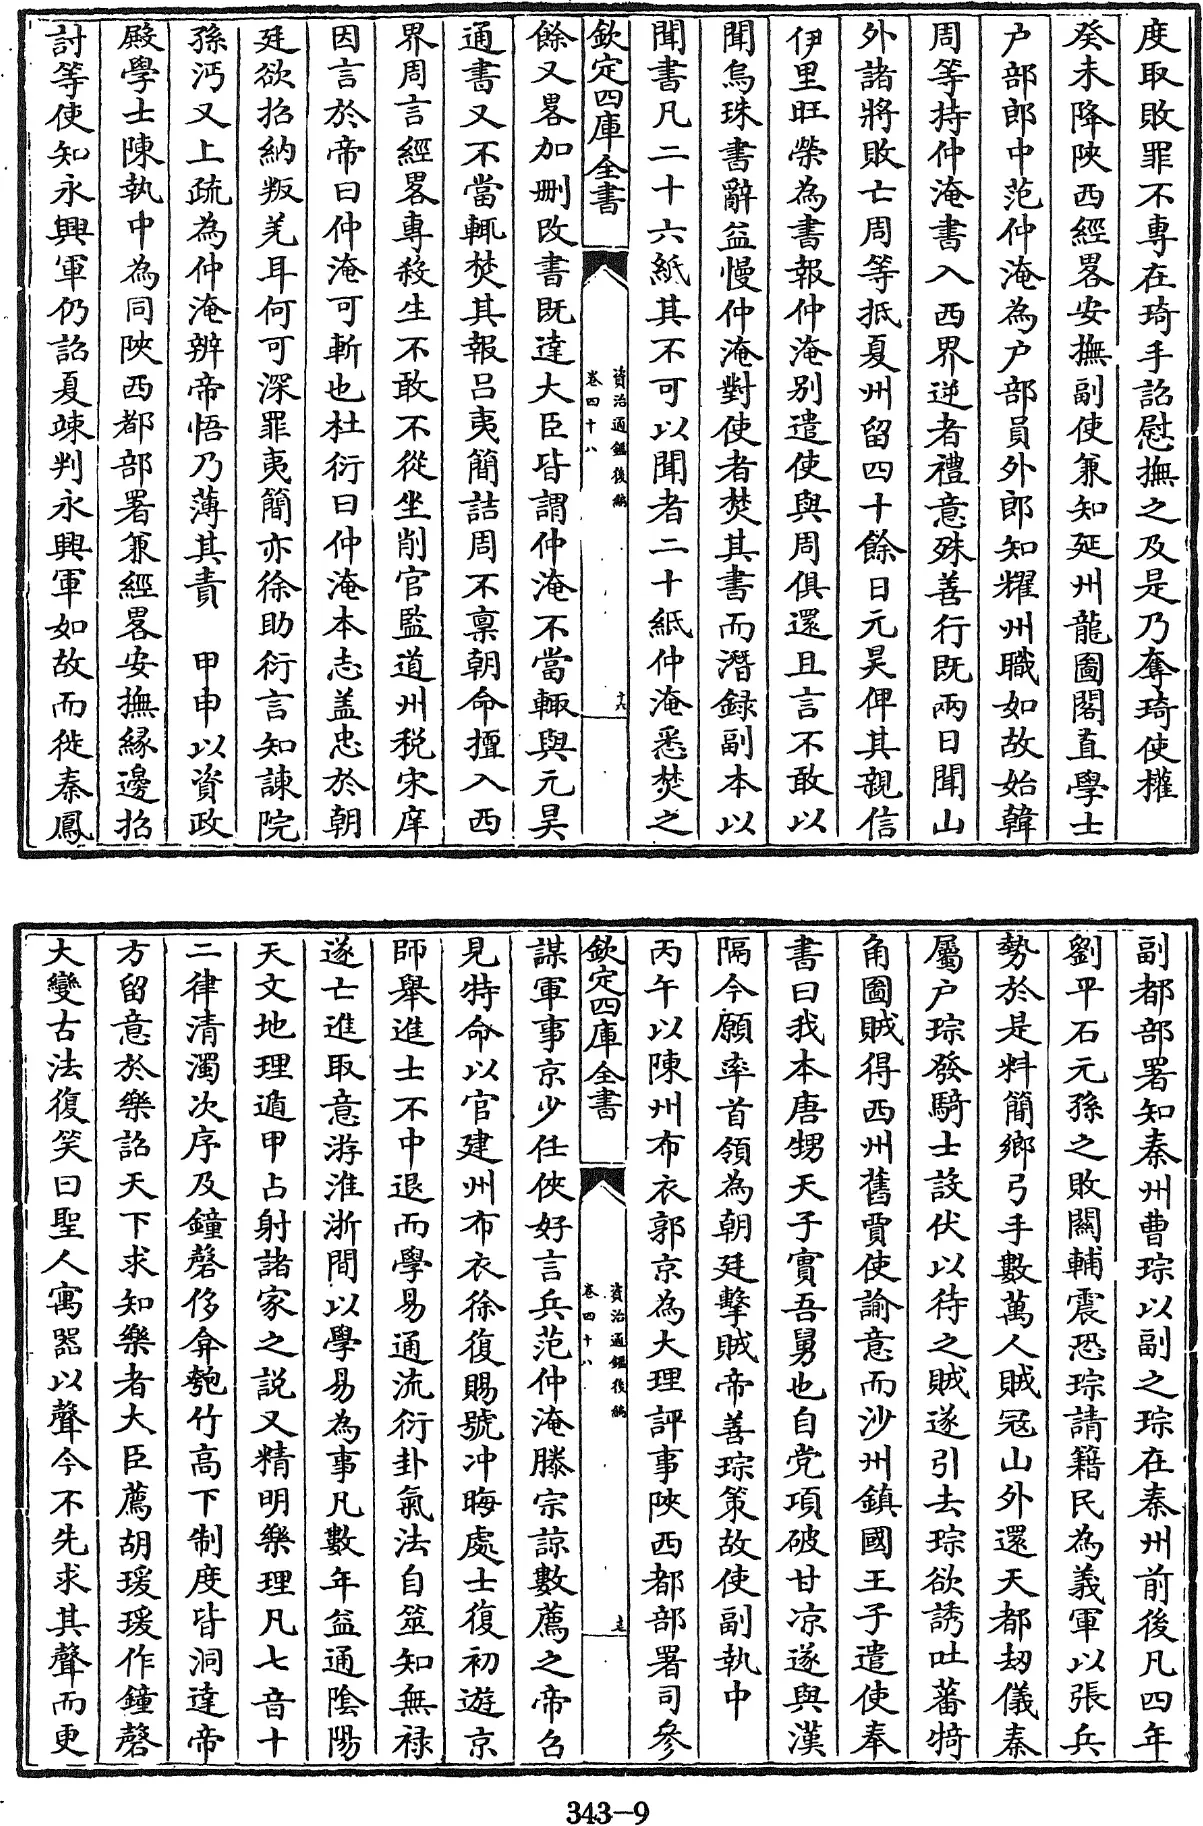 度取敗罪不專在琦手詔慰撫之及是乃奪琦使權
癸未降陝西經畧安撫副使兼知延州龍圖閣直學士
户部郎中范仲淹為户部員外郎知耀州職如故始韓
周等持仲淹書入西界逆者禮意殊善行既兩日聞山
外諸將敗亡周等抵夏州留四十餘日元昊俾其親信
伊里旺榮為書報仲淹别遣使與周俱還且言不敢以
聞烏珠書辭益慢仲淹對使者焚其書而潛録副本以
聞書凡二十六紙其不可以聞者二十紙仲淹悉焚之
欽定四庫全書
資治通鑑後編
卷四十八
十八
餘又畧加刪改書既達大臣皆謂仲淹不當輒與元昊
通書又不當輒焚其報吕夷簡詰周不禀朝命擅入西
界周言經畧專殺生不敢不從坐削官監道州税宋庠
因言於帝曰仲淹可斬也杜衍曰仲淹本志盖忠於朝
廷欲招納叛羌耳何可深罪夷簡亦徐助衍言知諫院
孫沔又上疏為仲淹辨帝悟乃薄其責　甲申以資政
殿學士陳執中為同陝西都部署兼經畧安撫緣邊招
討等使知永興軍仍詔夏竦判永興軍如故而徙秦鳳
副都部署知秦州曹琮以副之琮在秦州前後凡四年
劉平石元孫之敗關輔震恐琮請籍民為義軍以張兵
勢於是料簡鄉弓手數萬人賊冦山外還天都刼儀秦
屬户琮發騎士設伏以待之賊遂引去琮欲誘吐蕃犄
角圖賊得西州舊賈使諭意而沙州鎮國王子遣使奉
書曰我本唐甥天子實吾舅也自党項破甘凉遂與漢
隔今願率首領為朝廷擊賊帝善琮策故使副執中
丙午以陳州布衣郭京為大理評事陝西都部署司參
欽定四庫全書
資治通鑑後編
卷四十八
謀軍事京少任俠好言兵范仲淹滕宗諒數薦之帝召
見特命以官建州布衣徐復賜號冲晦處士復初遊京
師舉進士不中退而學易通流衍卦氣法自筮知無禄
遂亡進取意游淮浙間以學易為事凡數年益通陰陽
天文地理遁甲占射諸家之説又精明樂理凡七音十
二律清濁次序及鐘磬侈弇匏竹高下制度皆洞達帝
方留意於樂詔天下求知樂者大臣薦胡瑗瑗作鐘磬
大變古法復笑曰聖人寓器以聲今不先求其聲而更
343-9